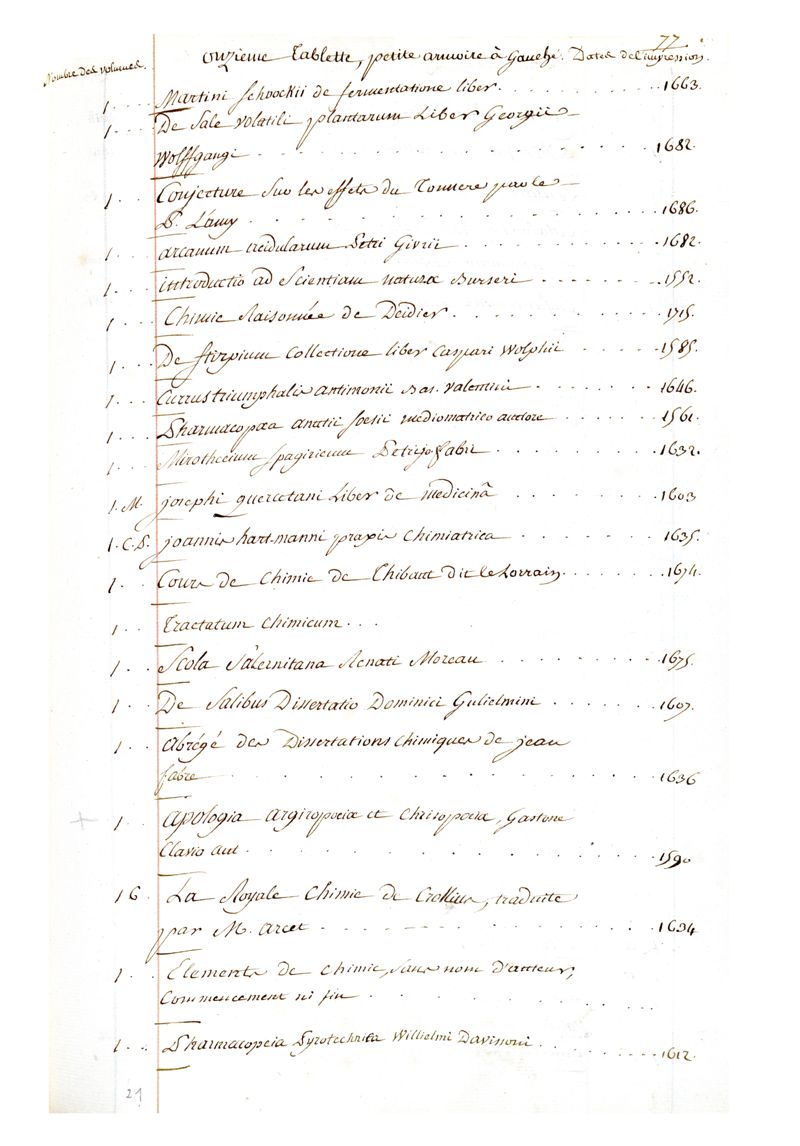 77
Nombre des volumes. onzieme Tablette, petite armoire à Gauche. Dates de l'impression.
1 . . . Martini Schoockii de fermentatione liber. . . . . . . . . . 1663.
1 . . . De Sale volatili plantarum Liber Georgii
Wolffgangi . . . . . . . . . . 1682.
1 . . Conjecture Sur les effets du Tonnere par le
P. L'amy . . . . . . . . . . 1686.
1 . . arcanum acidularum Petri Givrii . . . . . . . . . . 1682.
1 . . introductio ad Scientiam naturæ Burseri . . . . . . . 1552.
1 . . Chimie Raisonnée de Deidier . . . . . . . . . . 1715.
1 . . De Stirpium Collectione liber Caspari Wolphii . . . . . . 1585.
1 . . Currus triumphalis antimonii Bas. Valentini . . . . . . . 1646.
1 . . Pharmacopæa anatii foesii mediomatrico auctore . . . . . . 1561.
1 . . Mirothecium Spagiricum Petrijo fabri . . . . . . . . 1632.
1. M. josephi quercetani Liber de medicinâ . . . . . . . 1603
1. C. P. joannis hartmanni praxis Chimiatrica . . . . . . . 1635.
1 . . Cours de Chimie de Thibaut dit le Lorrain . . . . . . 1674.
1 . . Tractatum Chimicum . . .
1 . . Scola Salernitana Renati Moreau . . . . . . . 1675.
1 . . De Salibus Dissertatio Dominici Gulielmini . . . . . . 1607.
1 . . Abrégé des Dissertations chimiques de jean
fabre . . . . . . . . . . 1636
+ 1 . . apologia Argiropoeiæ et Chrisopoeiæ, Gastone
Clavio aut . . . . . . . . . . 1590
1 G La Royale Chimie de Crollius, traduite
par M. arcet . . . . . . . . . . 1634
1 . . Elements de chimie, sans nom d'auteur,
Commencement ni fin . . . . . . . . . .
1 . . . Pharmacopeia Pyrotechnica Willielmi Davissoni . . . . . . 1612.
21